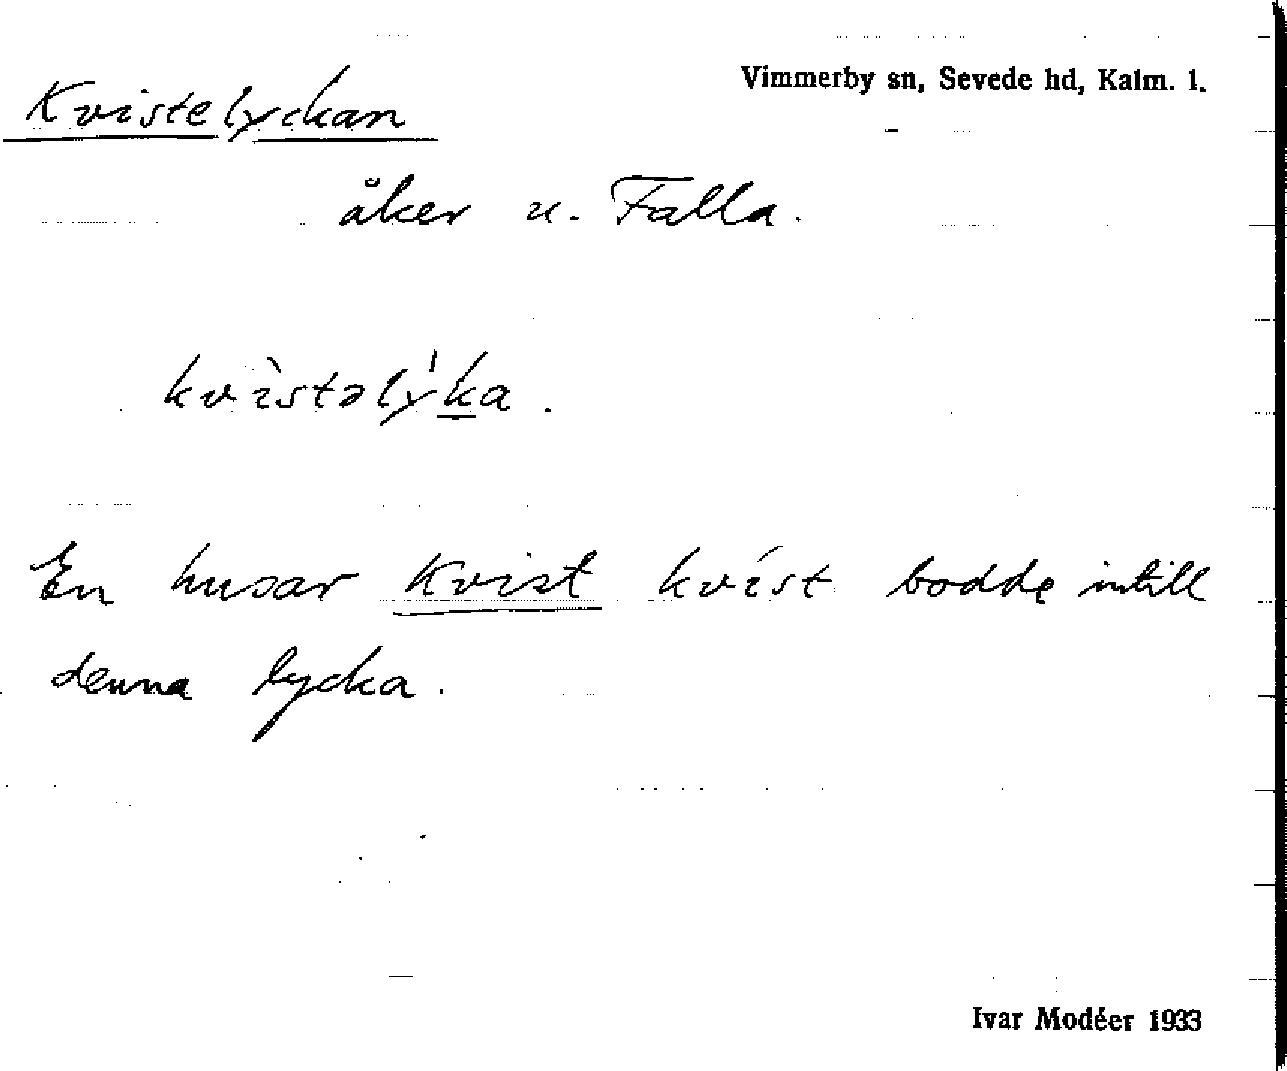 Vimmerby sn, Sevede hd, Kalm. l.
Kvistelyckan
åker u. Falla.
kvìstəlý'ka.
En husar Kvist kvíst bodde intill
denna lycka.
Ivar Modéer 1933